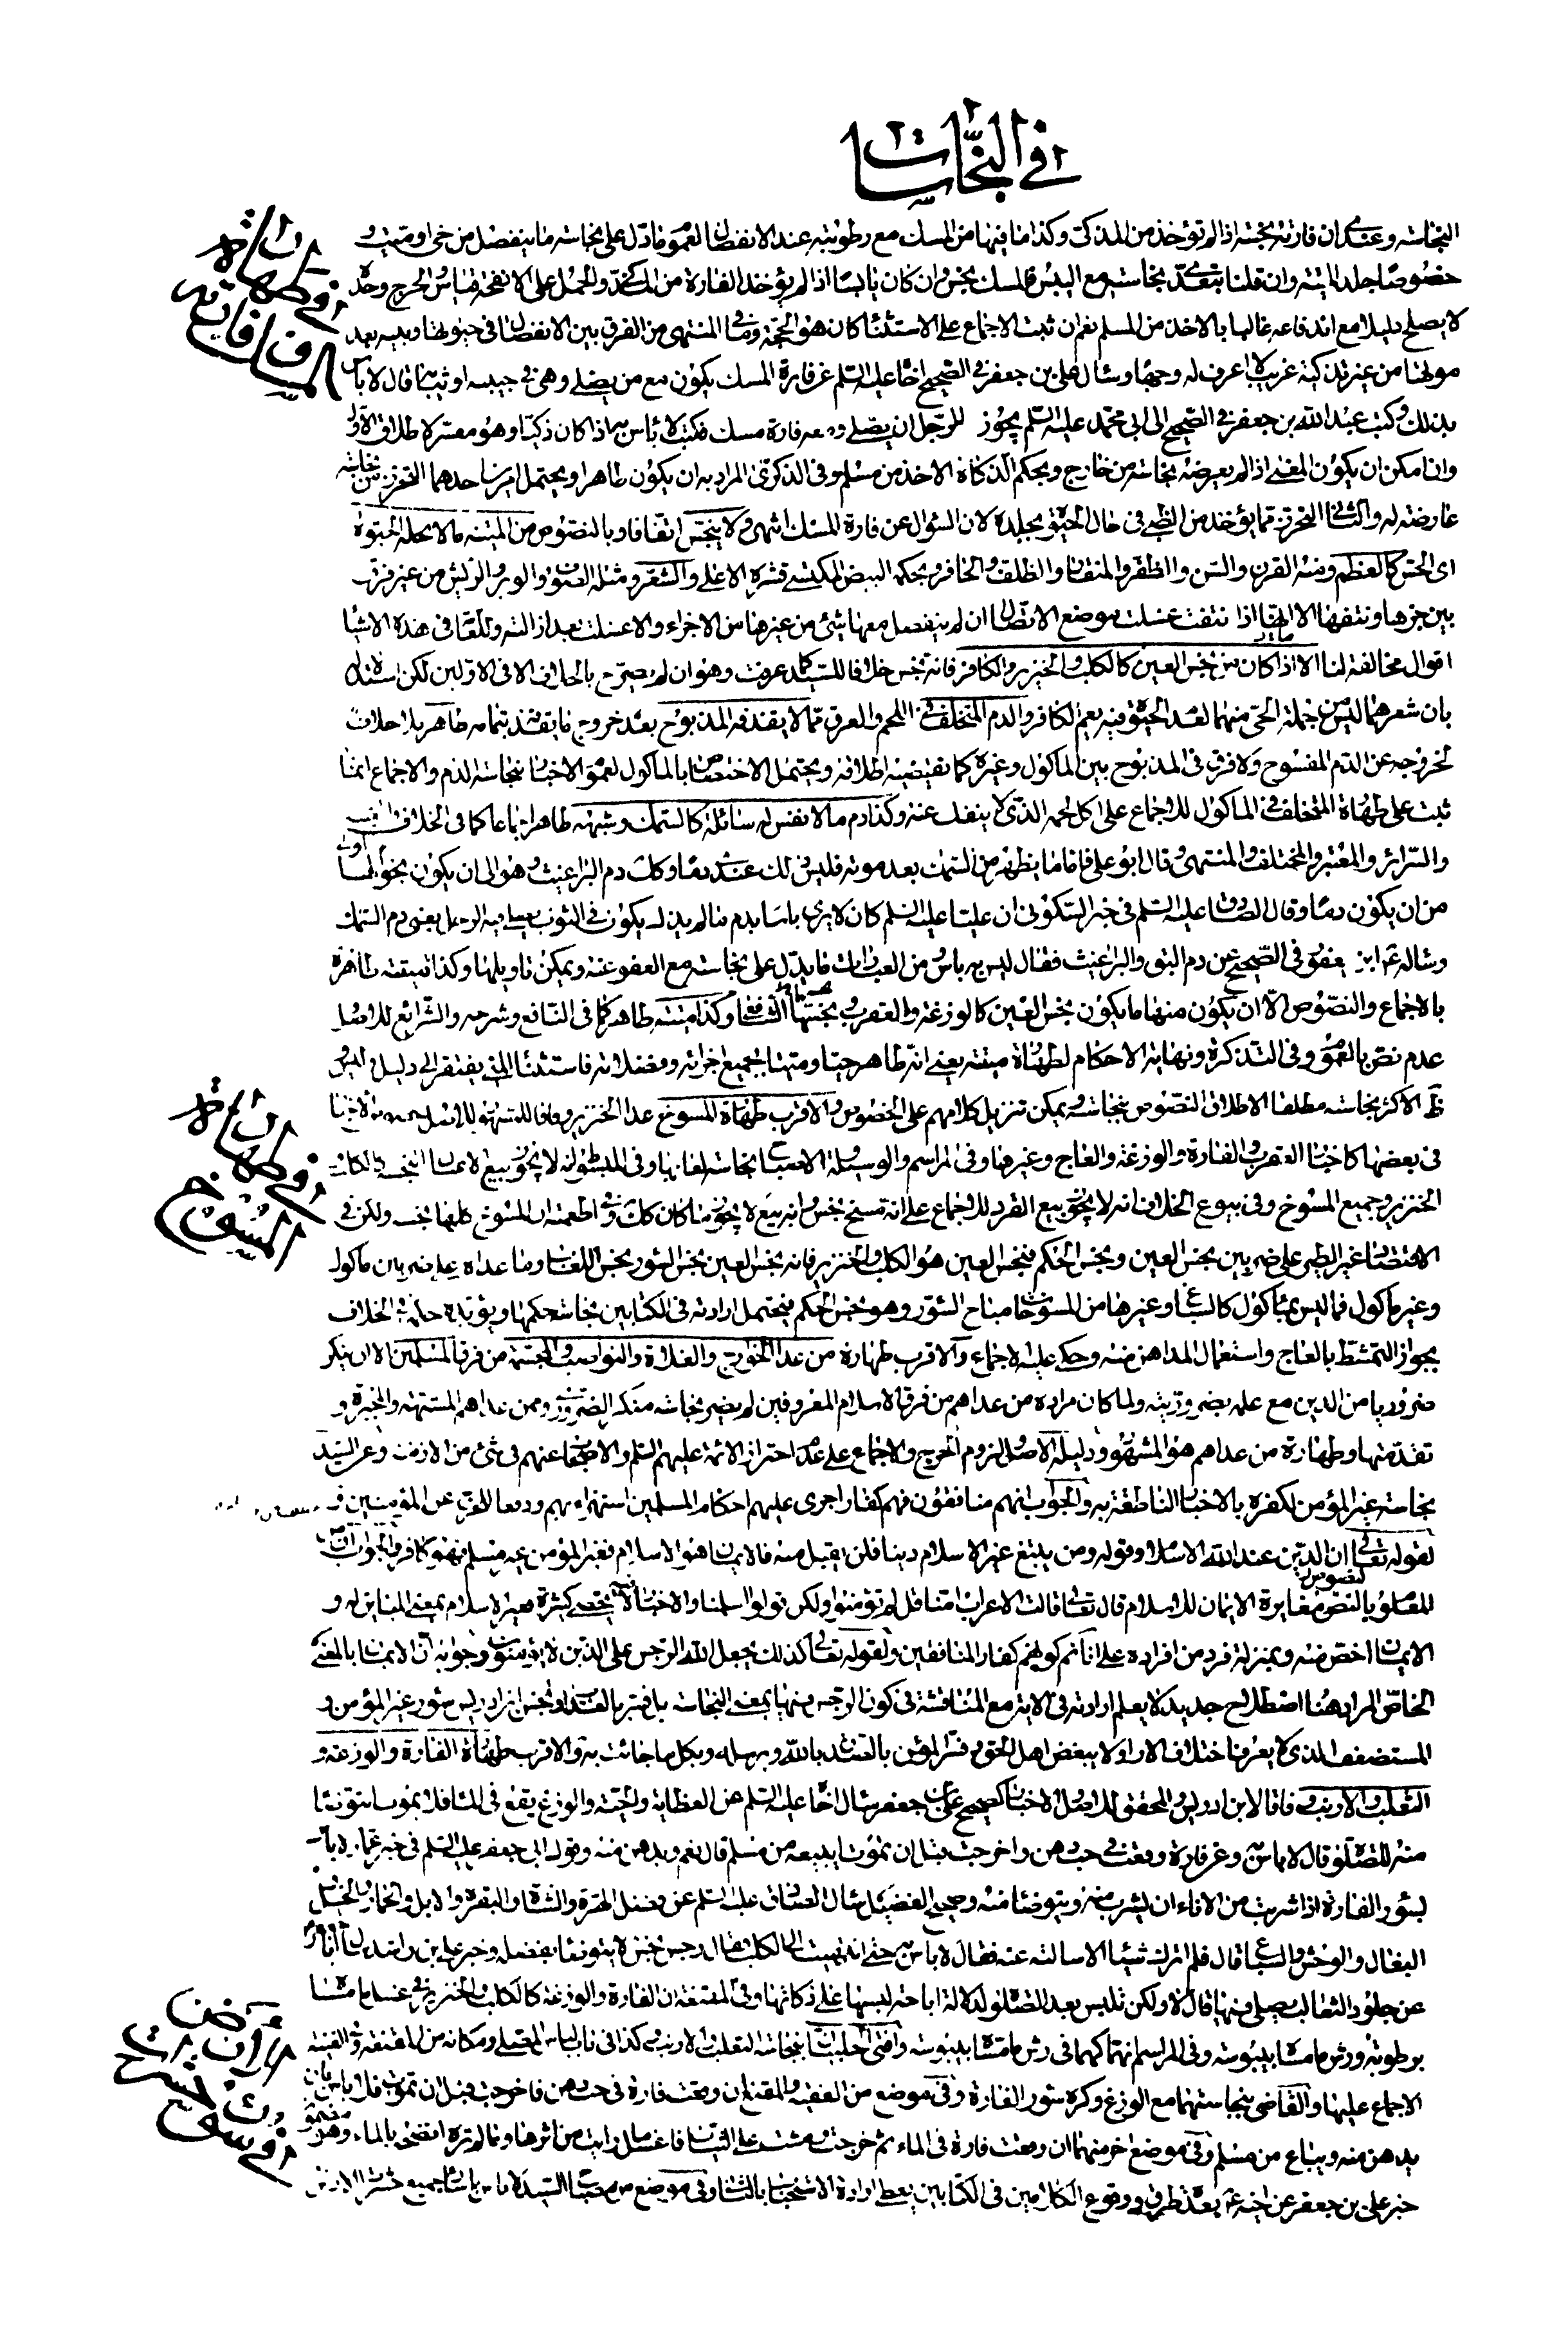 في النجاسات
النجاسة وعندي ان فارته نجسة اذا لم تؤخذ من المذكى وكذا ما فيها من المسك مع رطوبته عند الانفصال لعموم ما دل على نجاسة ما ينفصل من حي او ميت و
خصوصا جلد الميتة وان قلنا بتعدي نجاسته مع اليبس فالمسك نجس وان كان يابسا اذا لم يؤخذ الفارة من المذكى والحمل على الانفحة قياس والحرج وحده
لا يصلح دليلا مع اندفاعه غالبا بالاخذ من المسلم نعم ان ثبت الاجماع على الاستثناء كان هو الحجة وما في المنتهى من الفرق بين الانفصال في حيوتها وبينه بعد
موتها من غير تذكية غريب لا اعرف له وجها وسئال علي بن جعفر في الصحيح اخاه عليه السلم عن فارة المسك يكون مع من يصلي وهي في جيبه او ثيابه قال لا باس
بذلك وكتب عبد الله بن جعفر في الصحيح الى ابي محمد عليه السلم يجوز للرجل ان يصلي ومعه فارة مسك فكتب لا باس به اذا كان ذكيا وهو مفسر لاطلاق الاول
وان امكن ان يكون المعنى اذا لم يعرضه نجاسة من خارج وبحكم الذكاة الاخذ من مسلم وفي الذكرى المراد به ان يكون طاهرا ويحتمل امرين احدهما التحرز من نجاسة
عارضة له والثاني التحرز مما يؤخذ من الظبي في حال الحيوة بجلده لان السؤال عن فارة المسك انتهى ولا ينجس اتفاقا وبالنصوص من الميتة ما لا يحله الحيوة
اي الحس كالعظم ومنه القرن والسن والظفر والمنقار والظلف والحافر وبحكمه البيض المكتسي قشره الاعلى والشعر ومثله الصوف والوبر والريش من غير فرق
بين جزها ونتفها الا انها اذا نتفت غسلت موضع الاتصال ان لم ينفصل معها شيئ من غيرها من الاجزاء والا غسلت بعد ازالته وللعامة في هذه الاشياء
اقوال مخالفة لنا الا اذا كان من نجس العين كالكلب والخنزير والكافر فانه نجس خلافا للسيد كما عرفت وهو ان لم يصرح بالخلاف الا في الاولين لكن استدل
بان شعرهما ليس من جملة الحي منهما لفقد الحيوة فيه يعم الكافر والدم المتخلف في اللحم والعرق مما لا يقذفه المذبوح بعد خروج ما يقذفه بتمامه طاهر بلا خلاف
لخروجه عن الدم المسفوح ولا فرق في المذبوح بين الماكول وغيره كما يقتضيه اطلاقه ويحتمل الاختصاص بالماكول لعموم الاخبار بنجاسة الدم والاجماع انما
ثبت على طهارة المتخلف في الماكول للاجماع على اكل لحمه الذي لا ينفك عنه وكذا دم ما لا نفس له سائلة كالسمك وشبهه طاهر اجماعا كما في الخلاف
والسرائر والمعتبر والمختلف والمنتهى وقال ابو علي فاما ما يظهر من السمك بعد موته فليس ذلك عندي دما وكذلك دم البراغيث وهو الى ان يكون نجوا لها اولى
من ان يكون دما وقال الصادق عليه السلم في خبر السكوني ان عليا عليه السلم كان لا يرى باسا بدم ما لم يذك يكون في الثوب فيصلي فيه الرجل يعني دم السمك
وساله ابن ابي يعفور في الصحيح عن دم البق والبراغيث فقال ليس به باس ومن العبارات ما يدل على نجاسته مع العفو عنه ويمكن تاويلها وكذا ميتته طاهرة
بالاجماع والنصوص الا ان يكون منها ما يكون نجس العين كالوزغة والعقرب ونجسها الشافعي وكذا منيه طاهر كما في النافع وشرحه والشرائع للاصل
عدم نص بالعموم وفي التذكرة ونهاية الاحكام لطهارة ميتته يعني انه طاهر حيا وميتا بجميع اجزائه وفضلاته فاستثناء المني يفتقر الى دليل وليس
ظ الاكثر نجاسته مطلقا لاطلاق النصوص بنجاسته ويمكن تنزيل كلامهم على الخصوص والاقرب طهارة المسوخ عدا الخنزير وفاقا للمشهور للاصل والاخبار
في بعضها كاخبار العقرب والفارة والوزغة والعاج وغيرها وفي المراسم والوسيلة الاصباح نجاسة لعابها وفي المبسوط انه لا يجوز بيع الاعيان النجسة كالكلب
الخنزير وجميع المسوخ وفي بيوع الخلاف انه لا يجوز بيع القرد للاجماع على انه مسخ نجس وانه بيع لا يجوز ما كان كذلك وفي اطعمته ان المسوخ كلها نجسة ولكن في
الاقتصاد غير الطير على ضربين نجس العين ونجس الحكم فنجس العين هو الكلب والخنزير فانه نجس العين نجس السؤر نجس اللعاب وما عداه على ضربين ماكول
وغير ماكول فما ليس بماكول كالسباع وغيرها من المسوخات مباح السؤر وهو نجس الحكم فيحتمل ارادته في الكتابين نجاسة حكمها ويؤيده حكمه في الخلاف
بجواز التمشط بالعاج واستعمال المداهن منه وحكى عليه الاجماع والاقرب طهارة من عدا الخوارج والغلاة والنواصب والمجسمة من فرق المسلمين الا ان ينكر
ضروريا من الدين مع علمه بضروريته ولما كان مراده من عداهم من فرق الاسلام المعروفين لم يضر نجاسة منكر الضروري وممن عداهم المشبهة والمجبرة و
تقدمتها وطهارة من عداهم هو المشهور ودليله الاصل ولزوم الحرج والاجماع على عدم احتراز الائمة عليهم السلم والاصحاب عنهم في شئ من الازمنة وعن السيد
نجاسة غير المؤمن لكفره بالاخبار الناطقة به والجواب انهم منافقون فهم كفار اجرى عليهم احكام المسلمين استهزاء بهم ودفعا للحرج عن المؤمنين
لقوله تعالى ان الدين عند الله الاسلام وقوله ومن يبتغ غير الاسلام دينا فلن يقبل منه فالايمان هو الاسلام فغير المؤمن غير مسلم فهو كافر والجواب ان
المعلوم بالنصوص مغايرة الايمان للاسلام قال تعالى قالت الاعراب امنا قل لم تؤمنوا ولكن قولوا اسلمنا والاخبار لا تحصى كثرة فغير الاسلام بمعنى المباين له و
الايمان اخص منه وبمنزلة فرد من افراده على انا نحكم كونهم كفار المنافقين ولقوله تعالى كذلك يجعل الله الرجس على الذين لا يؤمنون وجوابه ان الايمان بالمعنى
الخاص المراد هنا اصطلاح جديد لا يعلم ارادته في الاية مع المناقشة في كون الرجس فيها بمعنى النجاسة بل فسر بالعذاب ونجس ابن ادريس سؤر غير المؤمن و
المستضعف الذي لا يعرف اختلاف الاراء ولا يبغض اهل الحق وفسر المؤمن بالمصدق بالله وبرسله وبكل ما جائت به والاقرب طهارة الفارة والوزغة و
الثعلب والارنب وفاقا لابن ادريس والمحقق للاصل والاخبار كصحيح علي بن جعفر سال اخاه عليه السلم عن العظاية والحية والوزغ يقع في الماء فلا يموت ايتوضأ
منه للصلوة قال لا باس به وعن فارة وقعت في حب دهن واخرجت قبل ان تموت ايبيعه من مسلم قال نعم ويدهن منه وقول ابي جعفر عليه السلم في خبر عمار لا باس
بسؤر الفارة اذا شربت من الاناء ان يشرب منه ويتوضأ منه وصحيح الفضيل سال الصادق عليه السلم عن فضل الهرة والشاة والبقرة والابل والحمار والخيل
البغال والوحش والسباع قال فلم اترك شيئا الا سالته عنه فقال لا باس به حتى انتهيت الى الكلب فقال رجس نجس لا يتوضأ بفضله وخبر علي بن راشد سال ابا جعفر
عن جلود الثعالب يصلي فيها قال لا ولكن تلبس بعد الصلوة لدلالة اباحة لبسها على ذكاتها وفي المقنعة ان الفارة والوزغة كالكلب والخنزير في غسل ما مسا
برطوبة ورش ما مسا بيبوسة وفي المراسم انهما كهما في رش ما مسا بيبوسة وافتى الحلبيان بنجاسة الثعلب والارنب وكذا في باب لباس المصلي ومكانه من المقنعة وفي الغنية
الاجماع عليها والقاضي بنجاستهما مع الوزغ وكره سؤر الفارة وفي موضع من الفقيه والمقنع ان وقعت فارة في حب دهن فاخرجت قبل ان تموت فلا باس بان
يدهن منه ويباع من مسلم وفي موضع اخر منهما ان وقعت فارة في الماء ثم خرجت ومشت على الثياب فاغسل ما رايت من اثرها وما لم تره انضحه بالماء وهو مضمون
خبر علي بن جعفر عن اخيه عليه السلام بعدة طرق ووقوع الكلامين في الكتابين يعطي ارادة الاستحباب بالثاني وفي موضع من مصباح السيد لا باس باسار جميع حشرات الارض